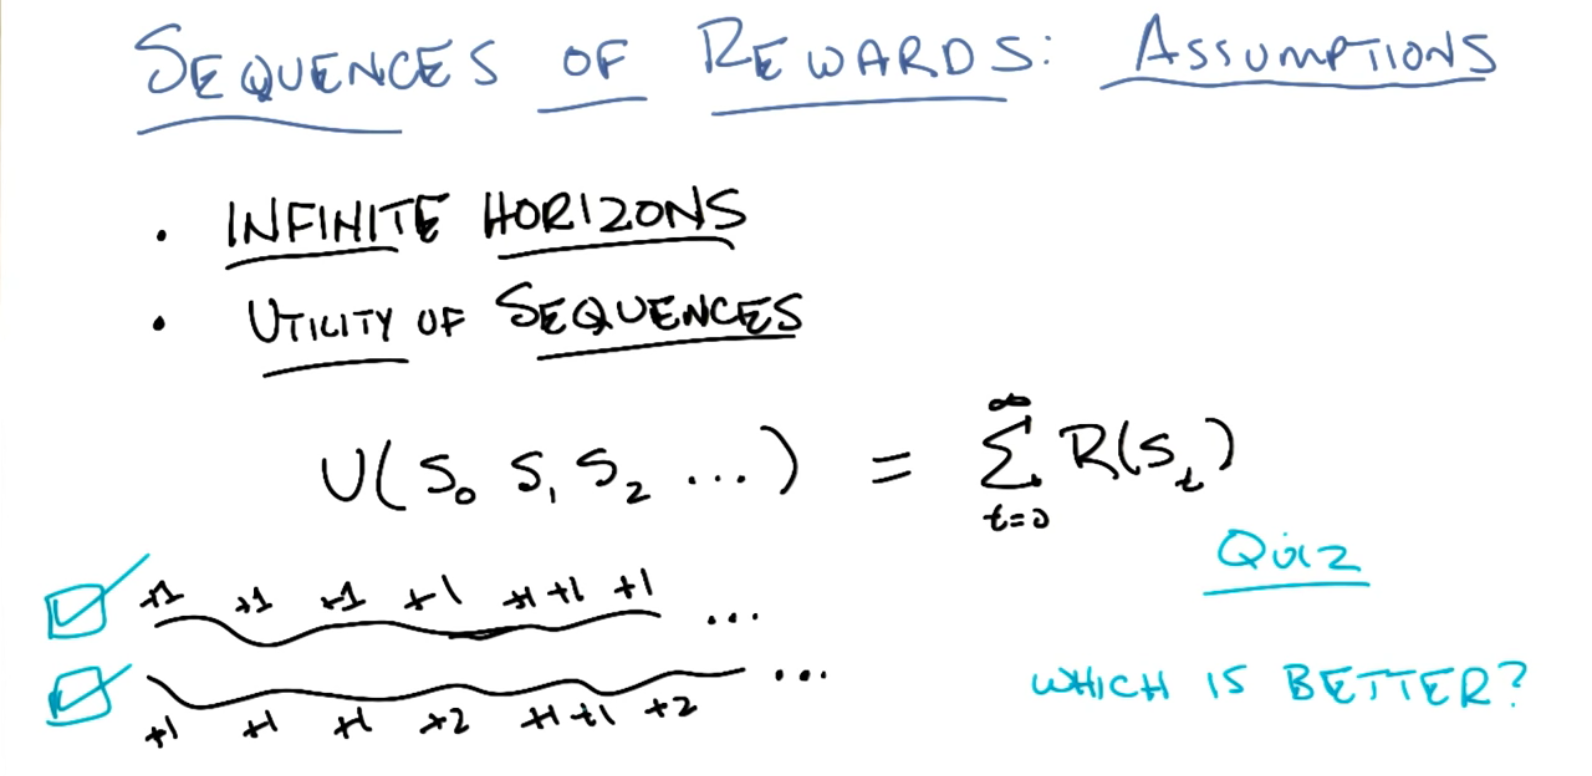 SEQUENCES OF REWARDS: ASSUMPTIONS
· INFINITE HORIZONS
· UTILITY OF SEQUENCES
U(S₀ S₁ S₂ ...) = ∑_{t=0}^{∞} R(S_t)
QUIZ
+1 +1 +1 +1 +1 +1 +1 ...
...
WHICH IS BETTER?
+1 +1 +1 +2 +1 +1 +2